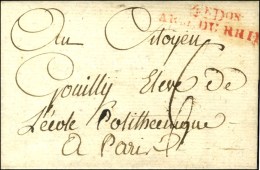 4E DON
ARM. DU RHIN
Au Citoyen
Gouilly Eleve de
L'école Polithecnique
A Paris